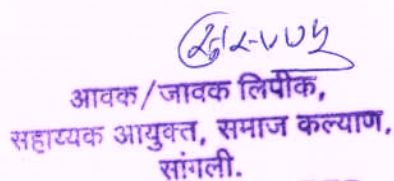 आवक/जावक लिपीक,
सहाय्यक आयुक्त, समाज कल्याण,
सांगली.